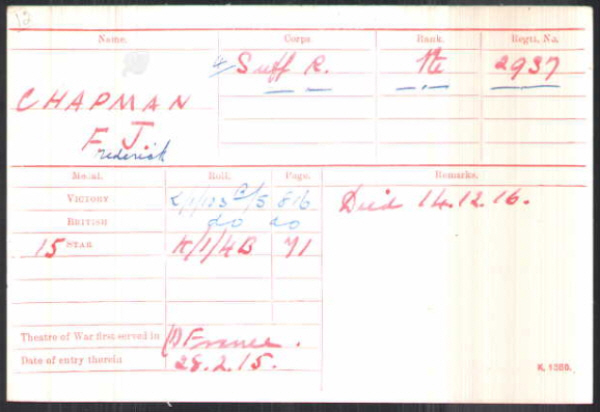 12
Name. Corps. Rank. Regtl. No.
4/ Suff R. Pte 2937
CHAPMAN
F. J.
rederick
Medal. Roll. Page. Remarks.
VICTORY 816 Died 14.12.16.
BRITISH do do
15 STAR K/1/4B 71
Theatre of War first served in (1) France.
Date of entry therein 28.2.15.
K. 1380.